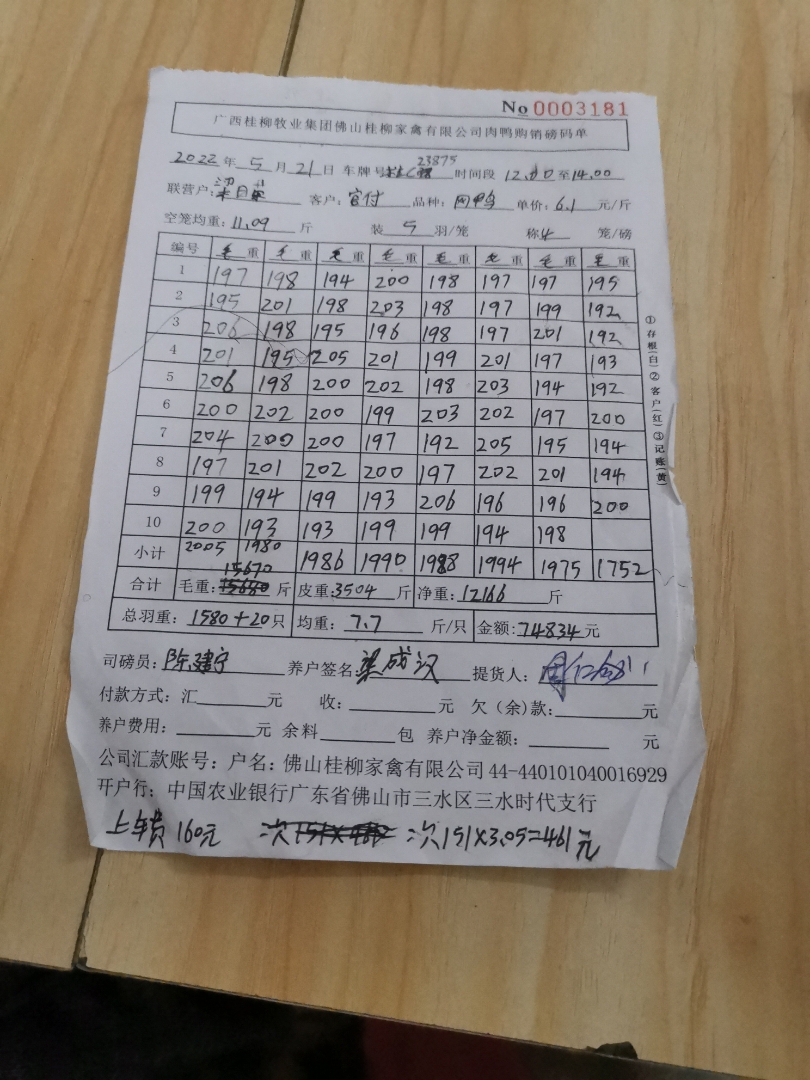 No 0003181
广西桂柳牧业集团佛山桂柳家禽有限公司肉鸭购销磅码单
2022年 5 月 21 日 车牌号 23875 时间段 12.00 至 14.00
联营户: 客户: 官付 品种: 肉鸭 单价: 6.1 元/斤
空笼均重: 11.09 斤 装 5 羽/笼 称 4 笼/磅
编号 毛重 毛重 毛重 毛重 毛重 毛重 毛重 毛重
1 197 198 194 200 198 197 197 195
2 195 201 198 203 198 197 199 192
3 206 198 195 196 198 197 201 192
4 201 195 205 201 199 201 197 193
5 206 198 200 202 198 203 194 192
6 200 202 200 199 203 202 197 200
7 204 200 200 197 192 205 195 194
8 197 201 202 200 197 202 201 194
9 199 194 199 193 206 196 196 200
10 200 193 193 199 199 194 198
小计 2005 1980 1986 1990 1988 1994 1975 1752
合计 毛重: 15670 斤 皮重: 3504 斤 净重: 12166 斤
总羽重: 1580+20 只 均重: 7.7 斤/只 金额: 74834 元
司磅员: 陈建宁 养户签名: 梁成汉 提货人:
付款方式: 汇 元 收: 元 欠(余)款: 元
养户费用: 元 余料 包 养户净金额: 元
公司汇款账号: 户名: 佛山桂柳家禽有限公司 44-440101040016929
开户行: 中国农业银行广东省佛山市三水区三水时代支行
上车费 160元 次 次151×3.05=461元
①存根(白)②客户(红)③记账(黄)